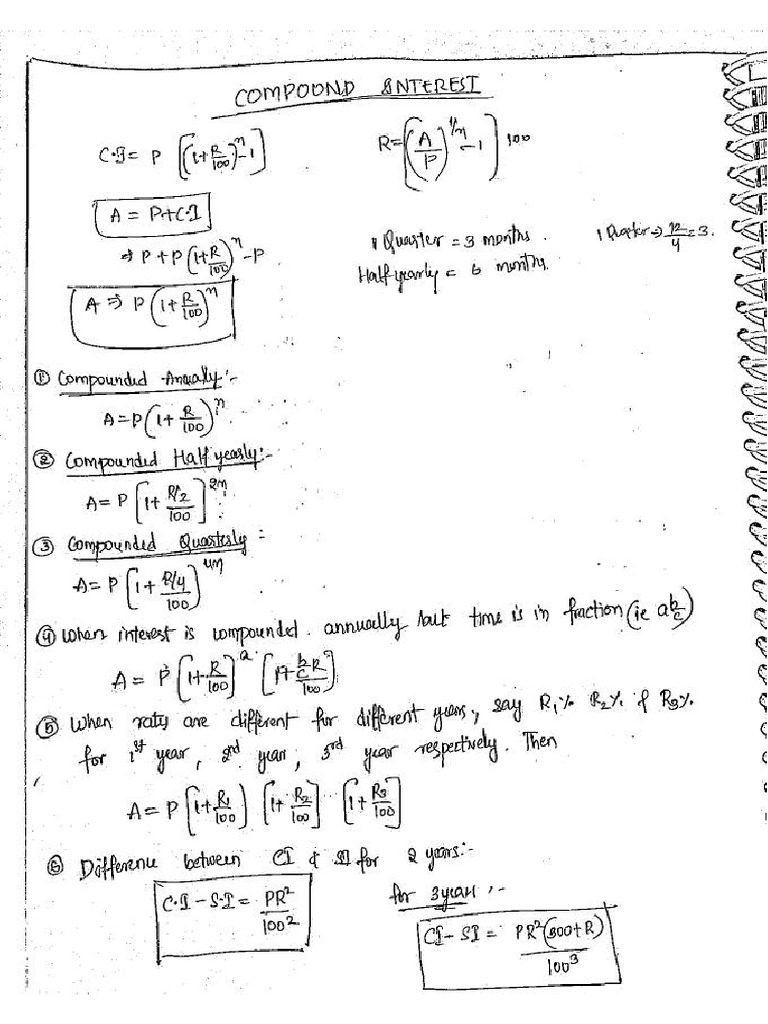 COMPOUND INTEREST
C.I = P [(1+R/100)^n - 1]
R = [(A/P)^1/n - 1] 100
A = P+C.I
⇒ P + P(1+R/100)^n - P
A ⇒ P(1+R/100)^n
1 Quarter = 3 months.
1 Quarter ⇒ 12/4 = 3.
Half yearly = 6 months.
① Compounded Annually:-
A = P(1+R/100)^n
② Compounded Half yearly:-
A = P[1+ (R/2)/100]^2n
③ Compounded Quarterly =
A = P[1+ (R/4)/100]^4n
④ When interest is compounded annually but time is in fraction (ie a b/c)
A = P[1+R/100]^a [1+ (b/c R)/100]
⑤ When rates are different for different years, say R1% R2% & R3%
for 1st year, 2nd year, 3rd year respectively. Then
A = P[1+R1/100] [1+R2/100] [1+R3/100]
⑥ Difference between CI & SI for 2 years:-
C.I - S.I = PR²/100²
for 3 years :-
CI - SI = PR²(300+R)/100³